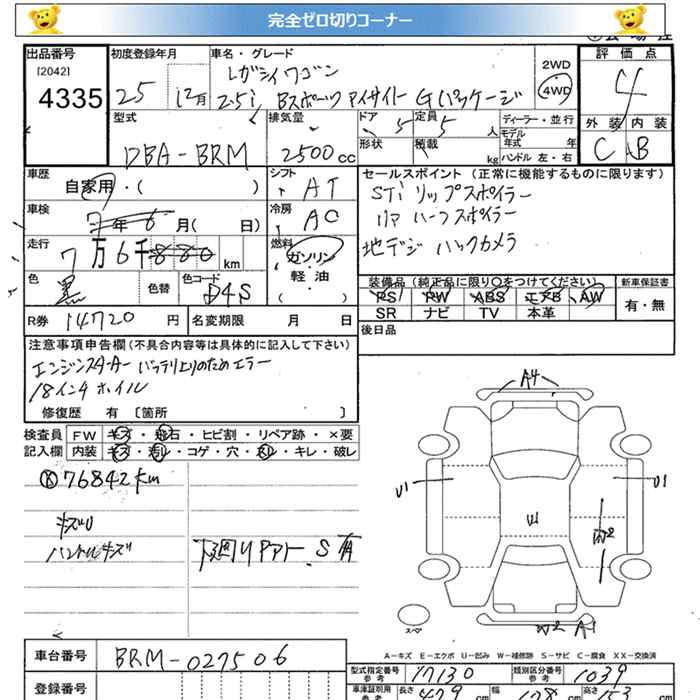 完全ゼロ切りコーナー
出品番号 初度登録年月 車名・グレード 評価点
[2042] レガシィワゴン 2WD 4
4335 25 12月 2.5i Bスポーツ アイサイト Gパッケージ 4WD 外装 内装
C B
型式 排気量 ドア 5 定員 5 人 ディーラー・並行
DBA-BRM 2500cc 形状 積載 kg モデル年式 年
ハンドル 左・右
車歴 シフト セールスポイント(正常に機能するものに限ります)
自家用・( ) AT STi リップスポイラー
車検 冷房 リア ハーフスポイラー
7年6月( 日) AC 地デジ バックカメラ
走行 燃料
7万6千 km ガソリン
色 色替 色コード 軽・油
黒 D4S ( )
装備品(純正品に限り○をつけてください) 新車保証書
PS PW ABS エアB AW 有・無
SR ナビ TV 本革
R券 14720 円 名変期限 月 日
後日品
注意事項申告欄(不具合内容等は具体的に記入して下さい)
エンジンスターター バッテリ上りのためエラー
18インチホイル
修復歴 有 [箇所 ]
検査員 FW キズ・飛石・ヒビ割・リペア跡・×要
記入欄 内装 キズ・汚レ・コゲ・穴・スレ・キレ・破レ
76842km
キズU
ハンドルキズ 下廻リアアト S有
A4
U1 U1
U1 W2
スペア W2 A1
A-キズ E-エクボ U-凹み W-補修跡 S-サビ C-腐食 XX-交換済
車台番号 BRM-027506
型式指定番号 参考 17130 類別区分番号 参考 1039
登録番号 車庫証明用 参考 長さ 479 cm 幅 178 cm 高さ 153